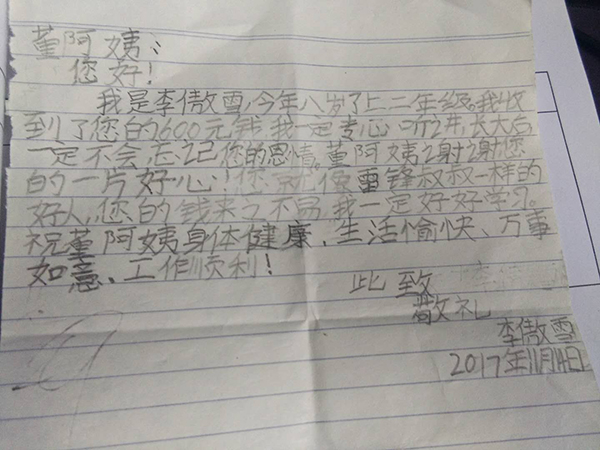 董阿姨:
您好!
我是李傲雪,今年八岁了上二年级。我收
到了您的600元钱,我一定专心听讲,长大后
一定不会忘记您的恩情。董阿姨谢谢您
的一片好心!您就像雷锋叔叔一样的
好人,您的钱来之不易,我一定好好学习。
祝董阿姨身体健康、生活愉快、万事
如意、工作顺利!
此致
敬礼
李傲雪
2017年11月14日